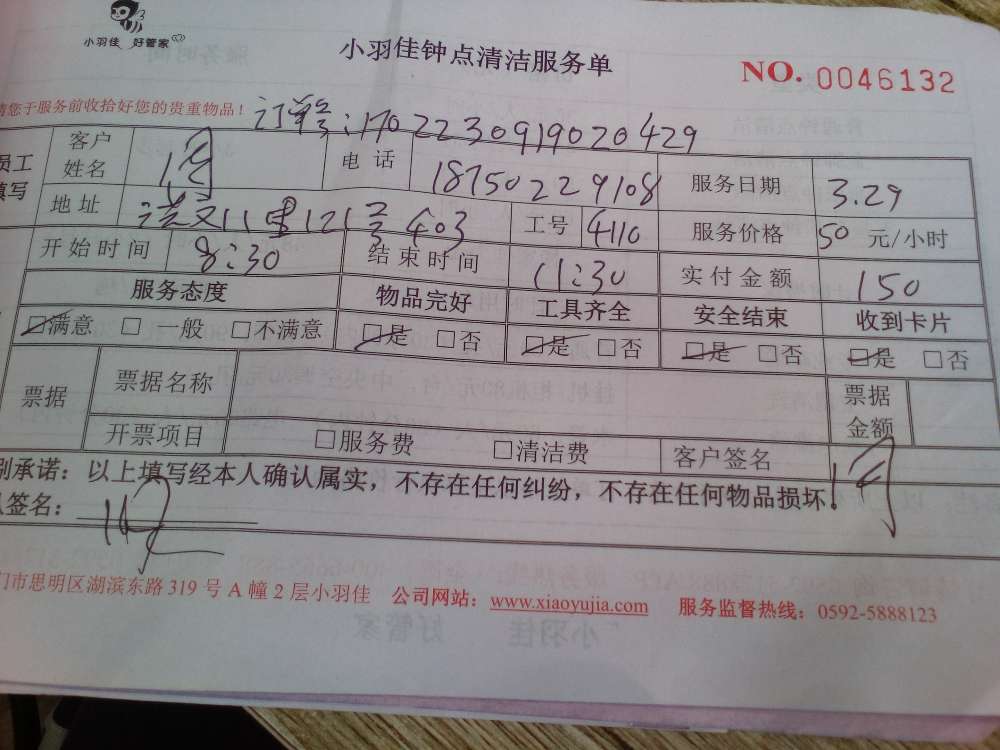 小羽佳 好管家
小羽佳钟点清洁服务单
NO. 0046132
请您于服务前收拾好您的贵重物品！
订单号:1702230919020429
员工填写
客户姓名
电 话 18750229108
服务日期 3.29
地 址 11里121号403
工号 4110
服务价格 50 元/小时
开始时间 8:30
结束时间 11:30
实付金额 150
服务态度 物品完好 工具齐全 安全结束 收到卡片
☑满意 □一般 □不满意 ☑是 □否 ☑是 □否 ☑是 □否 ☑是 □否
票据 票据名称 票据金额
开票项目 □服务费 □清洁费 客户签名
别承诺：以上填写经本人确认属实，不存在任何纠纷，不存在任何物品损坏！
签名：
门市思明区湖滨东路 319 号 A 幢 2 层小羽佳 公司网站：www.xiaoyujia.com 服务监督热线：0592-5888123